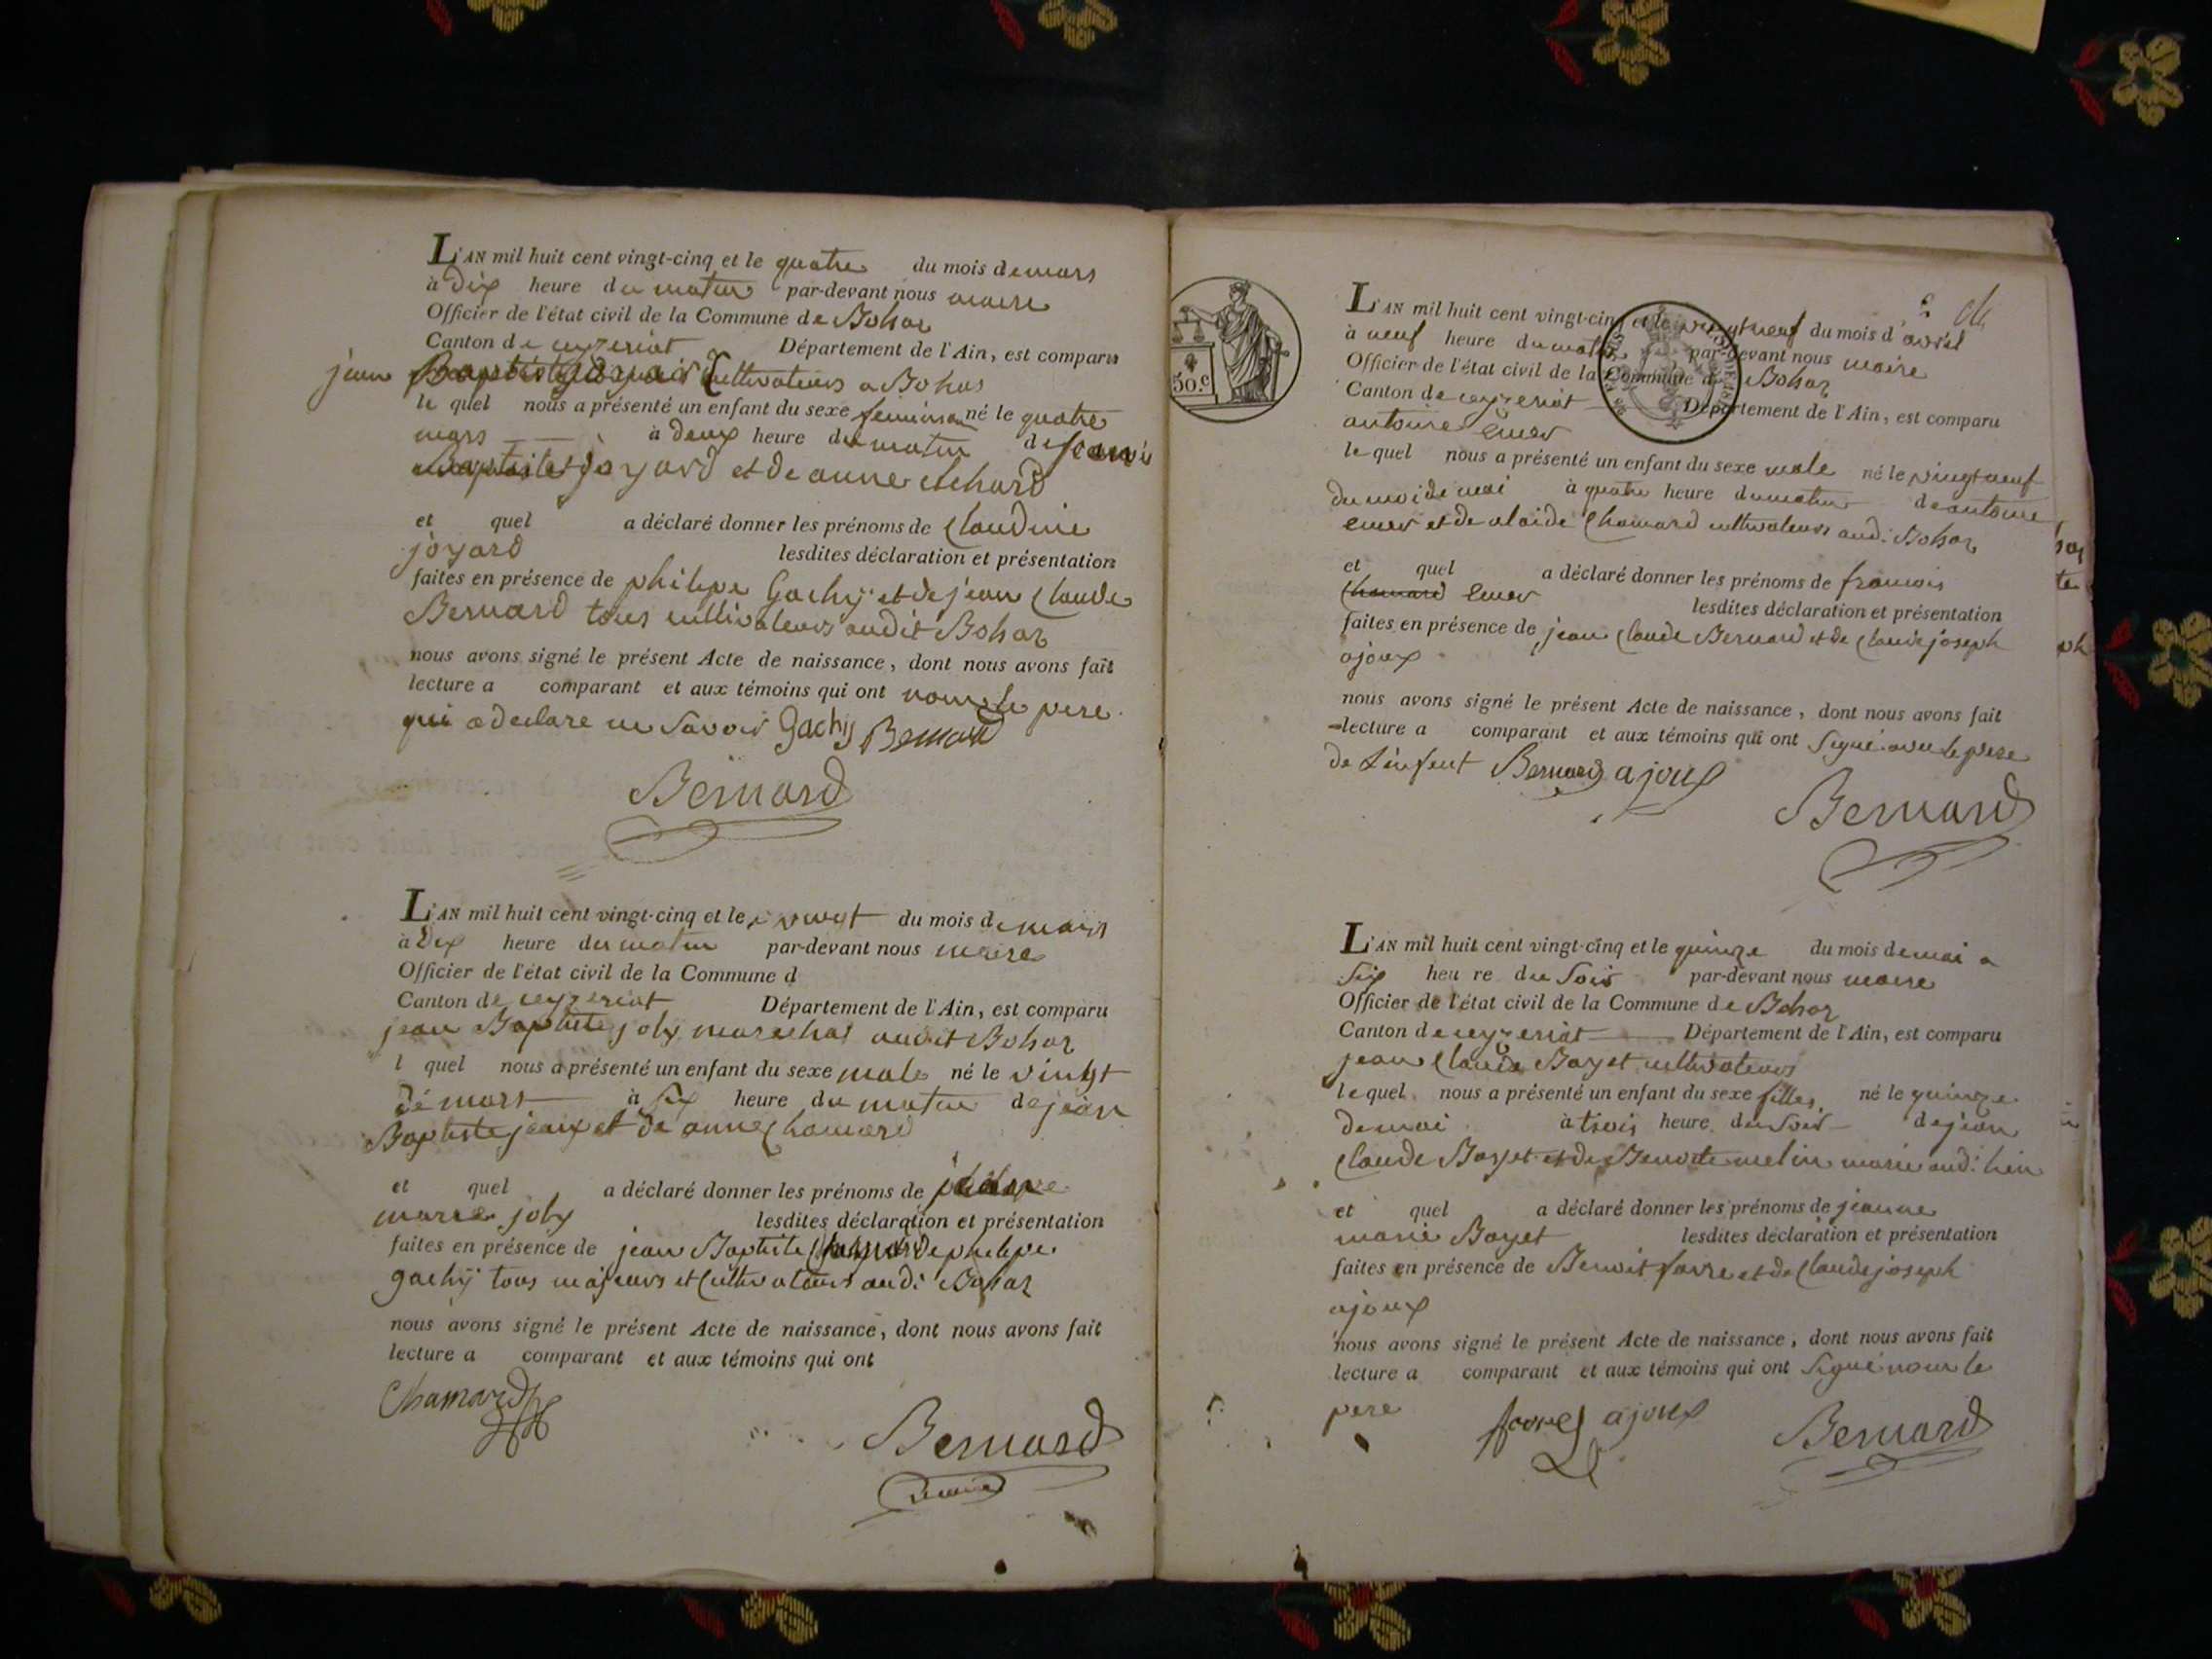 L'AN mil huit cent vingt-cinq et le quatre du mois de mars
à Dix heure du matin par-devant nous maire
Officier de l'état civil de la Commune de Bohas
Canton de ceyzeriat Département de l'Ain, est comparu
jean Baptiste joyard Cultivateur a Bohas
le quel nous a présenté un enfant du sexe feminin né le quatre
mars à deux heure du matin de jean
Baptiste joyard et de anne
et quel a déclaré donner les prénoms de Claudine
joyard lesdites déclaration et présentation
faites en présence de philipe Gachy et de jean Claude
Bernard tous cultivateurs audit Bohas
nous avons signé le présent Acte de naissance, dont nous avons fait
lecture a comparant et aux témoins qui ont non le pere
qui a declare ne savoir Gachy Bernard
Bernard
L'AN mil huit cent vingt-cinq et le vingt du mois de mars
à Dix heure du matin par-devant nous maire
Officier de l'état civil de la Commune d
Canton de ceyzeriat Département de l'Ain, est comparu
jean Baptiste joly marechal audit Bohas
l quel nous a présenté un enfant du sexe male né le vingt
de mars à six heure du matin de jean
Baptiste et de anne Chamard
et quel a déclaré donner les prénoms de philipe
marie joly lesdites déclaration et présentation
faites en présence de jean Baptiste Chamard de philipe
gachy tous majeurs et Cultivateurs audi Bohas
nous avons signé le présent Acte de naissance, dont nous avons fait
lecture a comparant et aux témoins qui ont
Chamard
Bernard
maire
50.c
L'AN mil huit cent vingt-cinq et le vingt neuf du mois d'avril
à neuf heure du matin par-devant nous maire
Officier de l'état civil de la Commune de Bohas
Canton de ceyzeriat Département de l'Ain, est comparu
antoine emer
le quel nous a présenté un enfant du sexe male né le vingt neuf
du moi de mai à quatre heure du matin de antoine
emer et de alaide Chamard cultivateurs audi Bohas
et quel a déclaré donner les prénoms de francois
Chamard emer lesdites déclaration et présentation
faites en présence de jean Claude Bernard et de Claude joseph
ajoux
nous avons signé le présent Acte de naissance, dont nous avons fait
lecture a comparant et aux témoins qui ont signé avec le pere
de l'enfent Bernard ajoux
Bernard
L'AN mil huit cent vingt-cinq et le quinze du mois de mai a
six heure du soir par-devant nous maire
Officier de l'état civil de la Commune de Bohas
Canton de ceyzeriat Département de l'Ain, est comparu
jean Claude Bozet cultivateur
le quel nous a présenté un enfant du sexe filles né le quinze
de mai à trois heure du soir de jean
Claude Bozet et de Benoite melin marié audi
et quel a déclaré donner les prénoms de jeanne
marie Bozet lesdites déclaration et présentation
faites en présence de Benoit favre et de Claude joseph
ajoux
nous avons signé le présent Acte de naissance, dont nous avons fait
lecture a comparant et aux témoins qui ont signé non le
pere favre ajoux Bernard